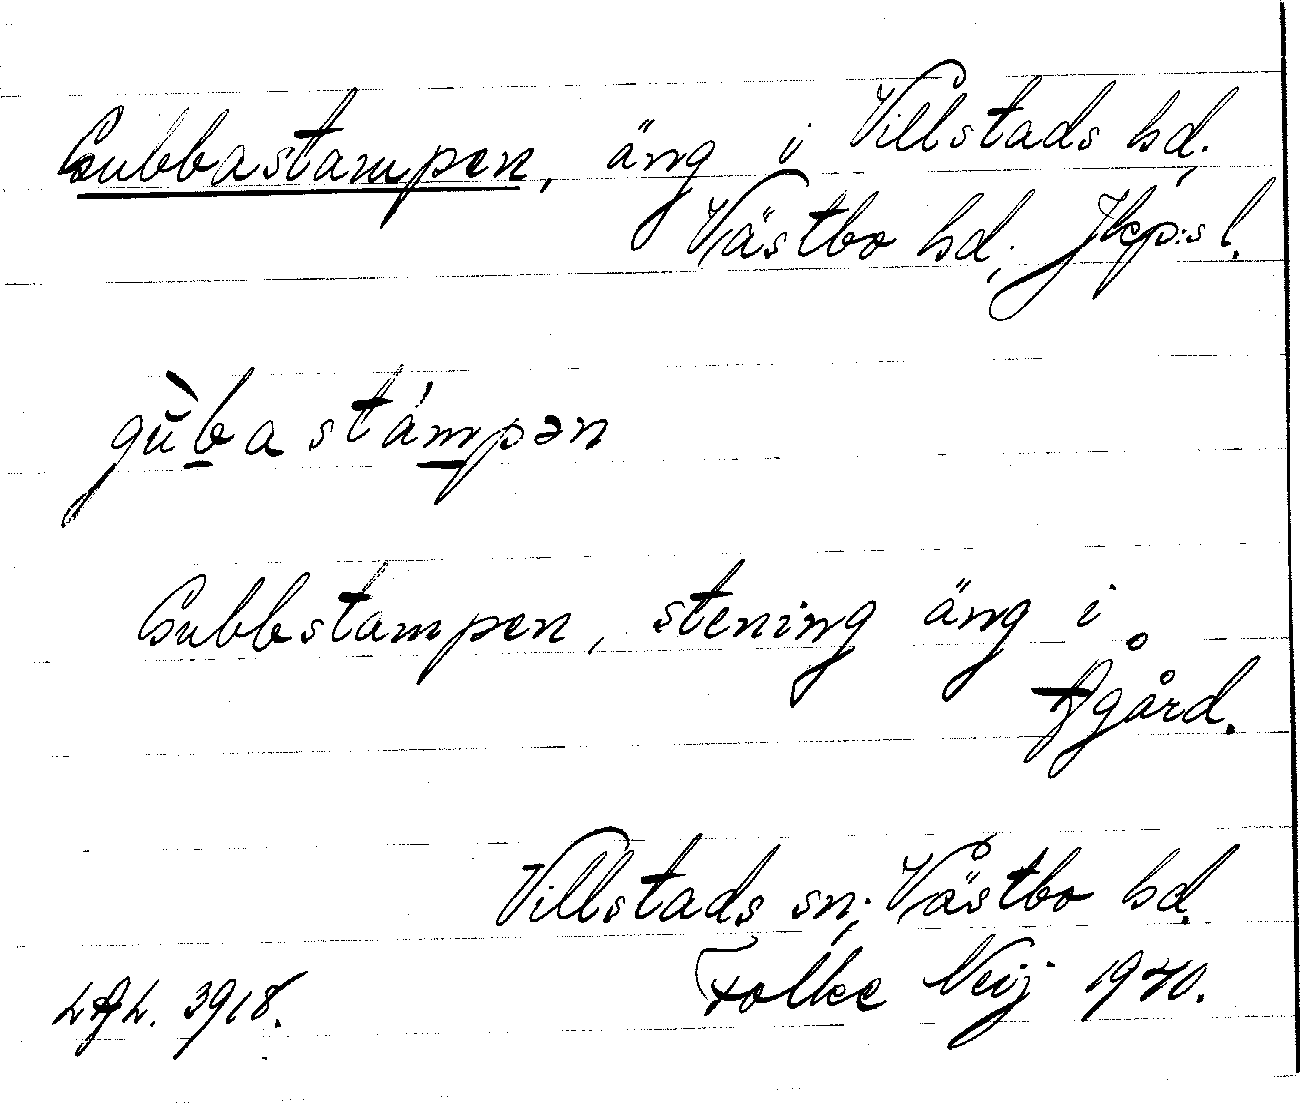 Gubbastampen, äng i Villstads hd;
Västbo hd; Jkp:s l.
gŭ̀b̲a stám̲pən
Gubbstampen, stening äng i
Ågård.
Villstads sn; Västbo hd.
Folke Neij 1940.
LAL. 3918.